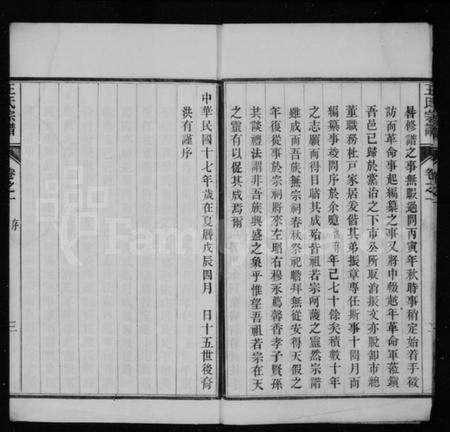 王氏宗譜
卷之一
咎修譜之事無暇過問丙寅年秋時事稍定始着手徵
訪而革命事起編纂之事又將中輟越年革命軍蒞鎮
吾邑已歸於黨治之下市公所取消振文亦脫卸市總
董職務杜戶家居爰偕其弟振章專任斯事十閱月而
編纂事竣問序於余曉 年已七十餘矣積數十年
之志願而得目睹其成殆吾祖若宗呵護之靈然宗譜
雖成而吾族無宗祠春秋祭祀瞻拜無從安得天假之
年復從事於宗祠將來左昭右穆烝蒿馨香孝子賢孫
其談禮法謂非吾族興盛之象乎惟望吾祖若宗在天
之靈有以促其成焉爾
中華民國十七年歲在夏曆戊辰四月 日十五世後裔
洪有謹序
王氏宗譜
卷之一 序
三